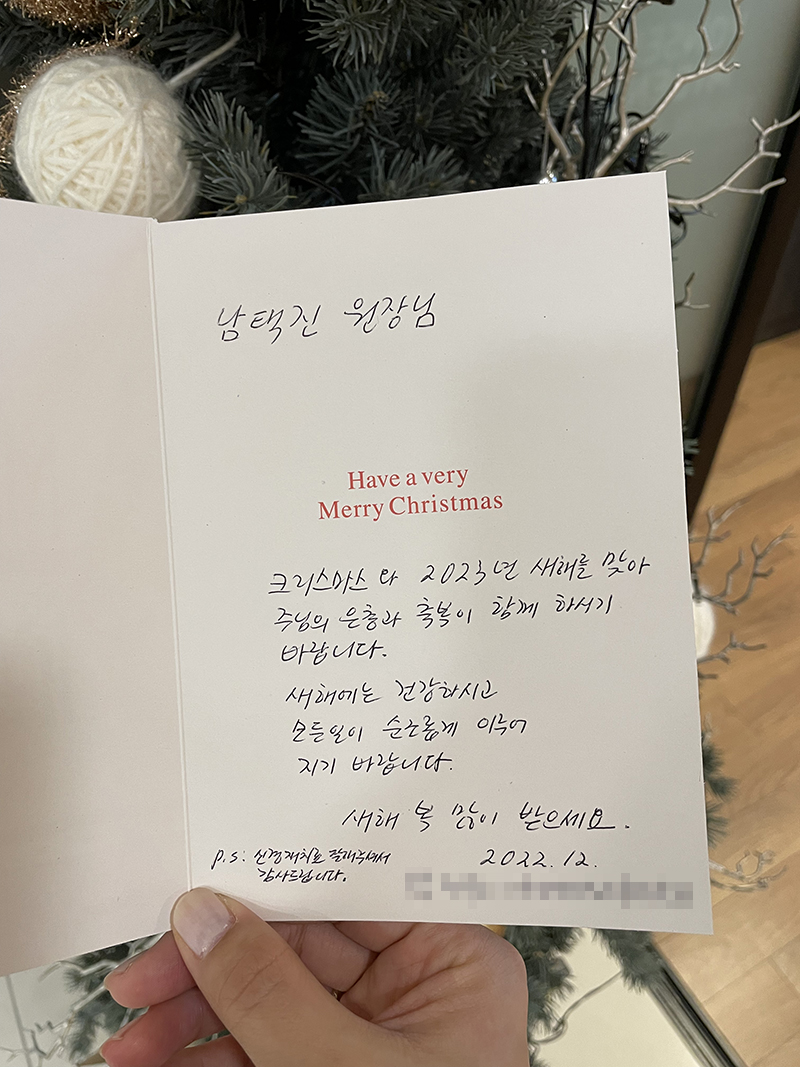 남택진 원장님
Have a very
Merry Christmas
크리스마스와 2023년 새해를 맞아
주님의 은총과 축복이 함께 하시기
바랍니다.
새해에는 건강하시고
모든일이 순조롭게 이루어
지기 바랍니다.
새해 복 많이 받으세요.
2022.12.
P.S: 신경재치료 잘해주셔서
감사드립니다.